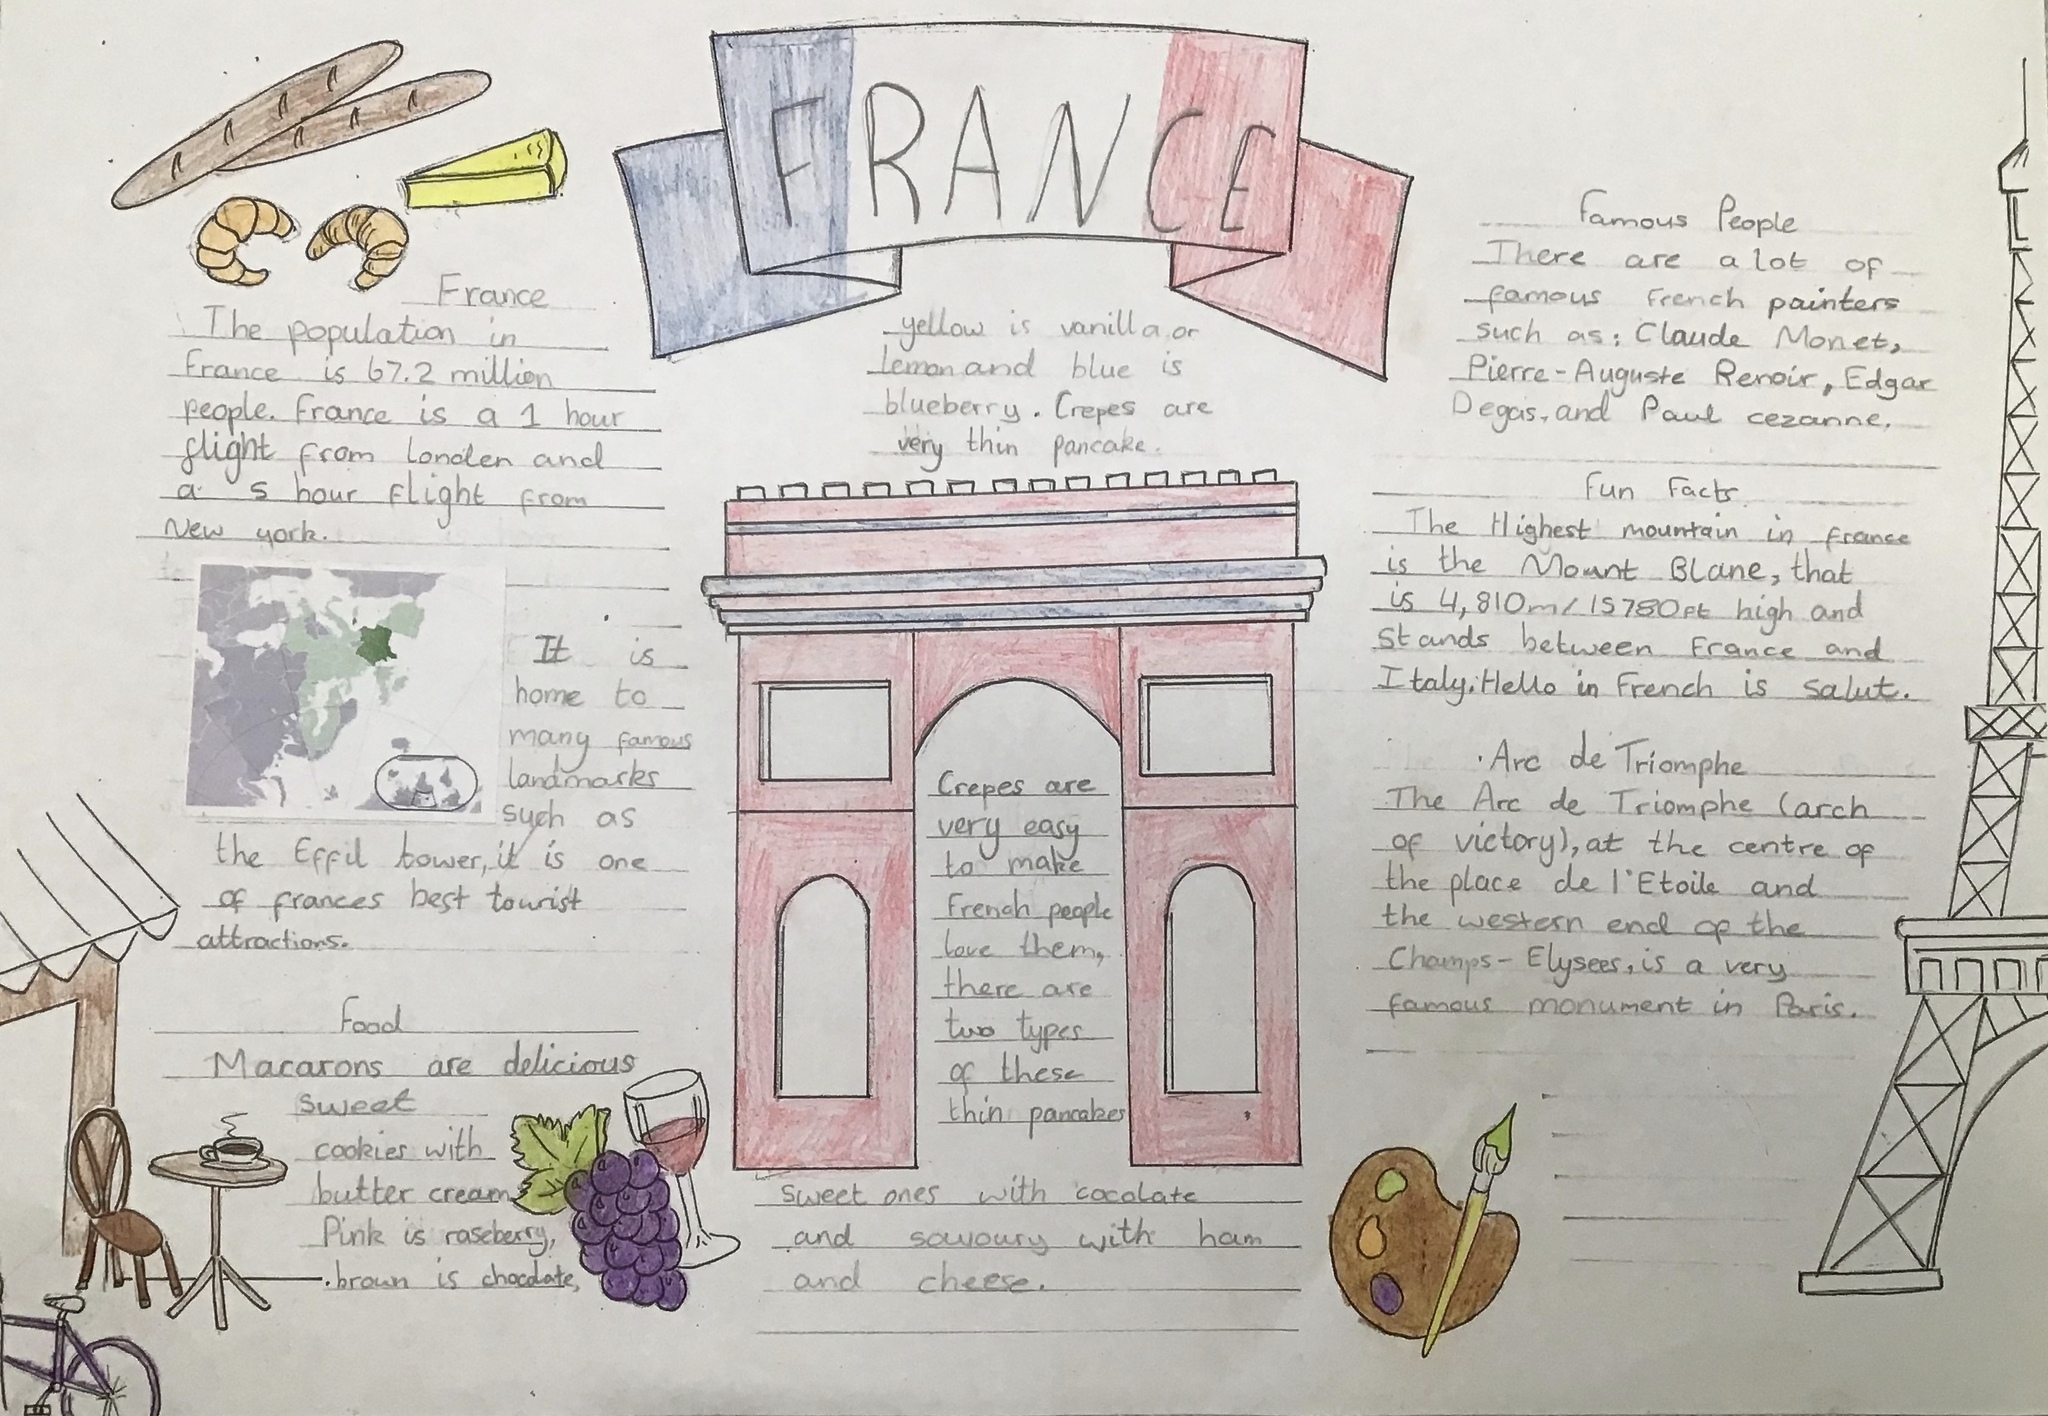 FRANCE
France
The population in
France is 67.2 million
people. France is a 1 hour
flight from london and
a 5 hour flight from
New york.
It is
home to
many famous
landmarks
such as
the Effil tower, it is one
of frances best tourist
attractions.
Food
Macarons are delicious
sweet
cookies with
butter cream
Pink is raseberry,
brown is chocolate,
yellow is vanilla or
lemon and blue is
blueberry. Crepes are
very thin pancake.
Crepes are
very easy
to make
French people
love them,
there are
two types
of these
thin pancakes
sweet ones with cocolate
and savoury with ham
and cheese.
Famous People
There are a lot of
famous French painters
such as: Claude Monet,
Pierre-Auguste Renoir, Edgar
Degas, and Paul cezanne.
Fun Facts
The Highest mountain in france
is the Mount Blanc, that
is 4,810m/15780ft high and
stands between France and
Italy. Hello in French is salut.
Arc de Triomphe
The Arc de Triomphe (arch
of victory), at the centre of
the place de l'Etoile and
the western end of the
Champs-Elysees, is a very
famous monument in Paris.